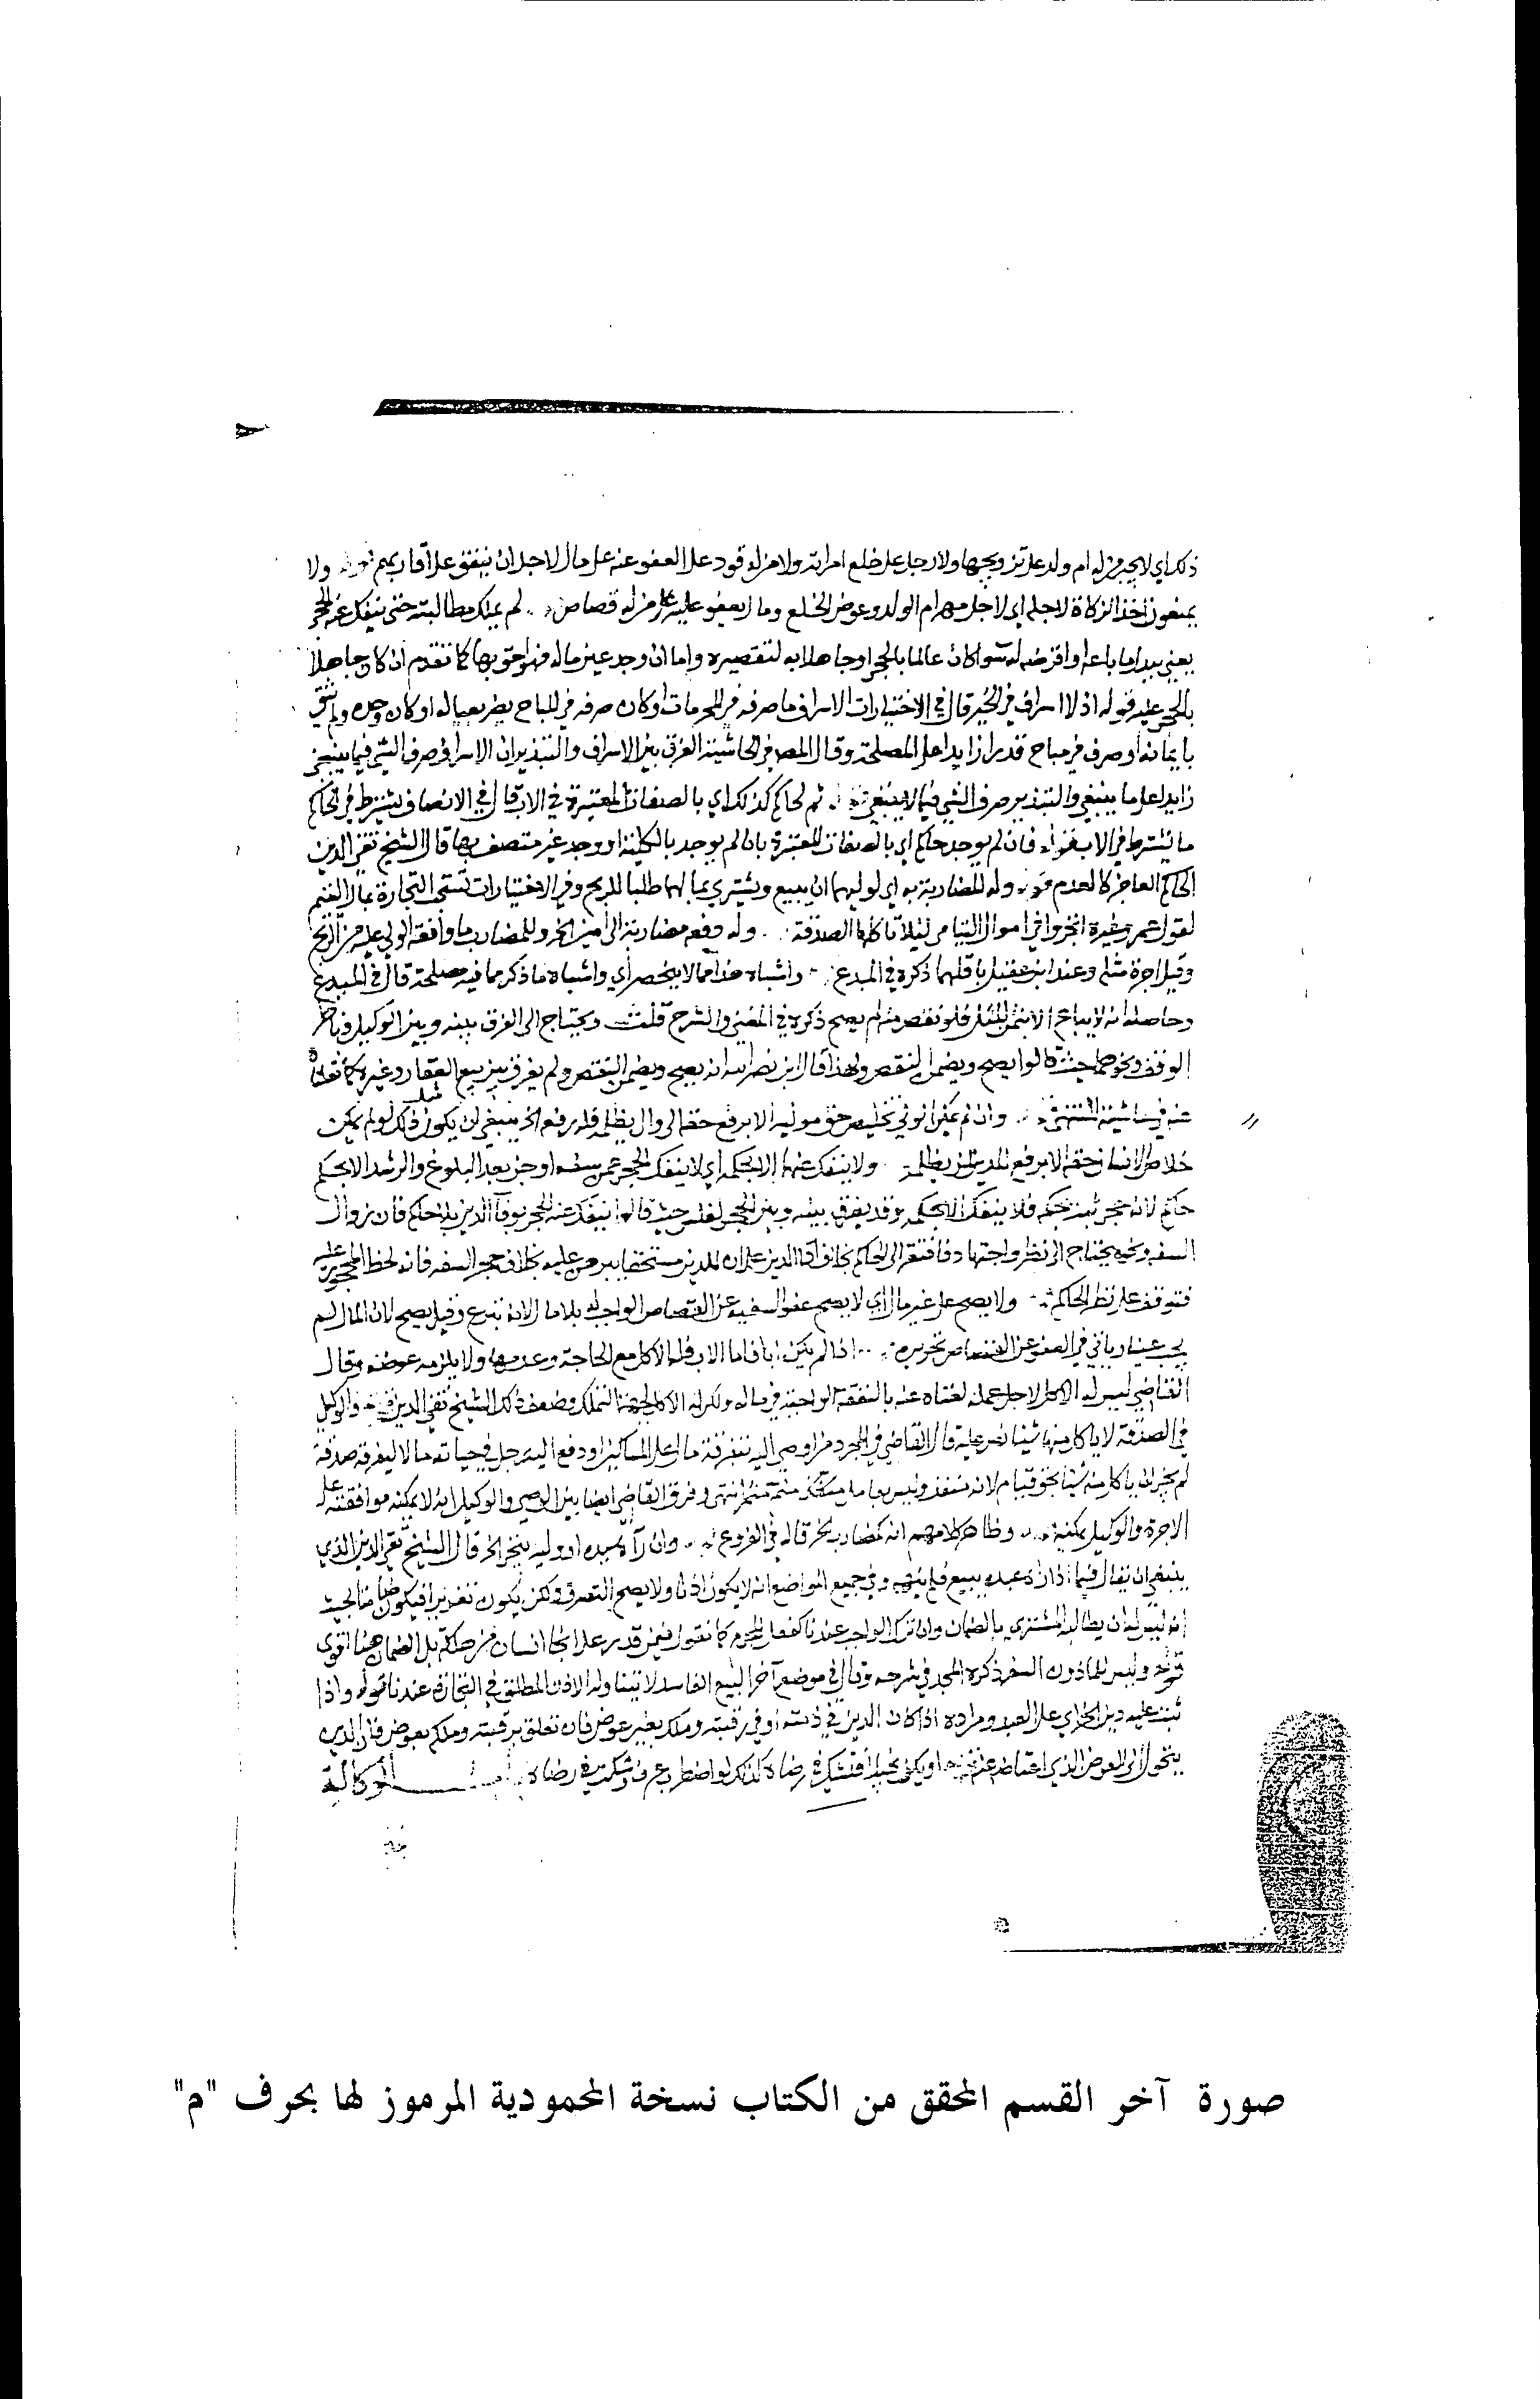 ذلك اي لا يجبر من له ام ولد على تزويجها ولا رجل على خلع امراته ولا من له قود على العفو عنه على مال لاجل ان ينفق على اقاربهم ولا
يمنعون اخذ الزكاة لاجله اي لاجل مهر ام الولد وعوض الخلع وما يعفو عليه من له قصاص لم يملك مطالبته حتى ينفك عنه الحجر
يعني ببدل ما باعه او اقرضه له سوا كان عالما بالحجر او جاهلا به لتقصيره واما ان وجد عين ماله فهو احق بها كما تقدم ان كان جاهلا
بالحجر عليه قوله اذ لا اسراف في الخير قال في الاختيارات الاسراف ما صرفه في المحرمات او كان صرفه في المباح يضر بعياله او كان وحده ولم يثق
بايمانه او صرف في مباح قدرا زايدا على المصلحة وقال المص في الحاشية الفرق بين الاسراف والتبذير ان الاسراف صرف الشي فيما ينبغي
زايدا على ما ينبغي والتبذير صرف الشي فيما لا ينبغي ثم لحاكم كذلك اي بالصفات المعتبرة في الاب قال في الانصاف يشترط في الحاكم
ما يشترط في الاب فان لم يوجد حاكم اي بالصفات المعتبرة بان لم يوجد بالكلية او وجد غير متصف بها قال الشيخ تقي الدين
الحاكم العاجز كالعدم وله المضاربة به اي لوليهما ان يبيع ويشتري بمالهما طلبا للربح وفي الاختيارات تستحب التجارة بمال اليتيم
لقول عمر وغيره اتجروا في اموال اليتامى لئلا تاكلها الصدقة وله دفعه مضاربة الى امين الخ وللمضارب ما وافقه الولي عليه من الربح
وقيل اجرة مثله وعند ابن عقيل باقلهما ذكره في المبدع واشباه هذا مما لا ينحصر اي واشباه ما ذكر مما فيه مصلحة قال في المبدع
وحاصله انه لا يباع الا بثمن المثل فلو نقص منه لم يصح ذكره في المغني والشرح قلت ويحتاج الى الفرق بينه وبين الوكيل وناظر
الوقف ونحوهما حيث قالوا يصح ويضمن النقص ولهذا قال ابن نصر الله انه يصح ويضمن النقص ولم يفرق بين بيع العقار وغيره كما نقله
عنه في حاشية المنتهى وان لم يمكن الولي تخليص حق موليه الا برفع حقه الى وال يظلمه فله رفعه الخ ينبغي ان يكون مثل ذلك لو لم يمكن
خلاص الانسان حقه الا برفع المدين لمن يظلمه ولا ينفك عنهما الا بحكمه اي لا ينفك الحجر عمن سفه او جن بعد البلوغ والرشد الا بحكم
حاكم لانه حجر ثبت بحكمه فلا ينفك الا بحكمه وقد يفرق بينه وبين الحجر لفلس حيث قالوا ينفك عنه الحجر بوفا الدين بلا حاكم فان زوال
السفه ونحوه يحتاج الى نظر واجتهاد فافتقر الى الحاكم بخلاف وفا الدين على ان للمدين مستحقا يبرهن عليه بخلاف حجر السفه فانه لحظ المحجور عليه
فتوقف على نظر الحاكم ولا يصح على غير مال اي لا يصح عفو السفيه عن القصاص الواجب له بلا مال لانه تبرع وقيل يصح لان المال لم
يجب عينا وياتي في العفو عن القصاص تحريره اذا لم يكن ابا فاما الاب فله الاكل مع الحاجة وعدمها ولا يلزمه عوضه وقال
القاضي ليس له الاكل لاجل عمله لغناه عنه بالنفقة الواجبة في ماله ولكن له الاكل بجهة التملك وضعف ذلك الشيخ تقي الدين والوكيل
في الصدقة لا ياكل منها شيئا نص عليه قال القاضي في المجرد من اوصي اليه بتفرقة مال على المساكين او دفع اليه رجل في حياته مالا ليفرقه صدقة
لم يجز ان ياكل منه شيئا بحق قيامه لانه منفذ وليس بعامل منتهى وفرق القاضي ايضا بين الوصي والوكيل انه لا يمكنه موافقته على
الاجرة والوكيل يمكنه وظاهر كلامهم انه كمضارب حر قاله في الفروع وان رآه سيده او وليه يتجر الخ قال الشيخ تقي الدين الذي
ينبغي ان يقال فيما اذا راى عبده يبيع فلم ينهه وفي جميع المواضع انه لا يكون اذنا ولا يصح التصرف ولكن يكون تغريرا فيكون ضامنا بحيث
انه ليس له ان يطالب المشتري بالضمان وان ترك الواجب عندنا كفعل المحرم كما نقول فيمن قدر على انجا انسان من هلكة بل الضمان هنا اقوى
قوله وليس للماذون السفر ذكره المجد في شرحه وقال في موضع آخر البيع الفاسد لا يتناوله الاذن المطلق في التجارة عندنا قوله واذا
ثبت عليه دين الخ اي على العبد ومراده اذا كان الدين في ذمته او في رقبته وملكه بغير عوض فان تعلق برقبته وملكه بعوض فان الدين
يتحول الى العوض الذي اعتاضه عنه او يكون بخيلا فتشك في رضاه كذلك لو اضطرب عرف وشك في رضاه باب الوكالة
صورة آخر القسم المحقق من الكتاب نسخة المحمودية المرموز لها بحرف "م"